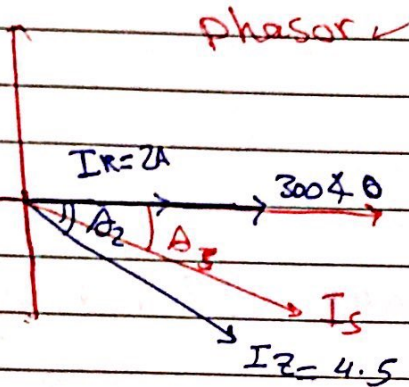 phasor
IR=2A
300∡0
θ2
θs
Is
IZ=4.5